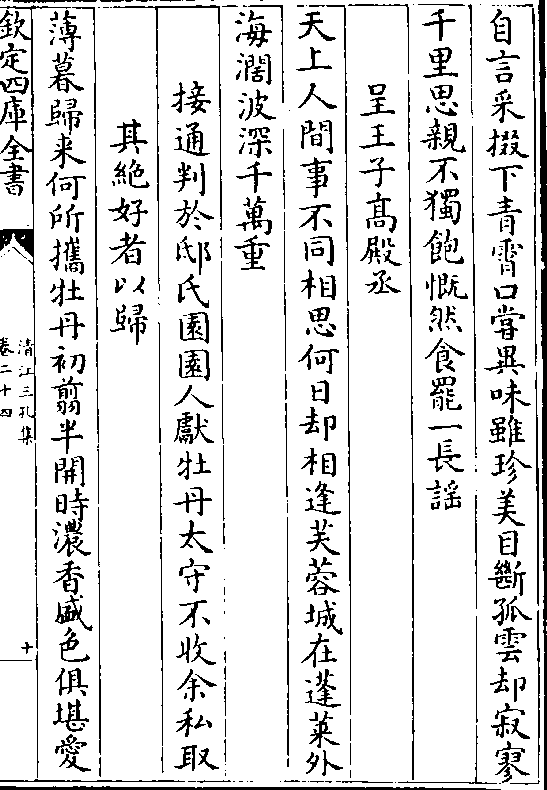 自言采掇下青霄口嘗異味雖珍美目斷孤雲却寂寥
千里思親不獨飽慨然食罷一長謡
呈王子髙殿丞
天上人間事不同相思何日却相逢芙蓉城在蓬莱外
海濶波深千萬重
接通判於邸氏園園人獻牡丹太守不收余私取
其絶好者以歸
薄暮歸来何所攜牡丹初翦半開時濃香盛色俱堪愛
欽定四庫全書
清江三孔集
卷二十四
十